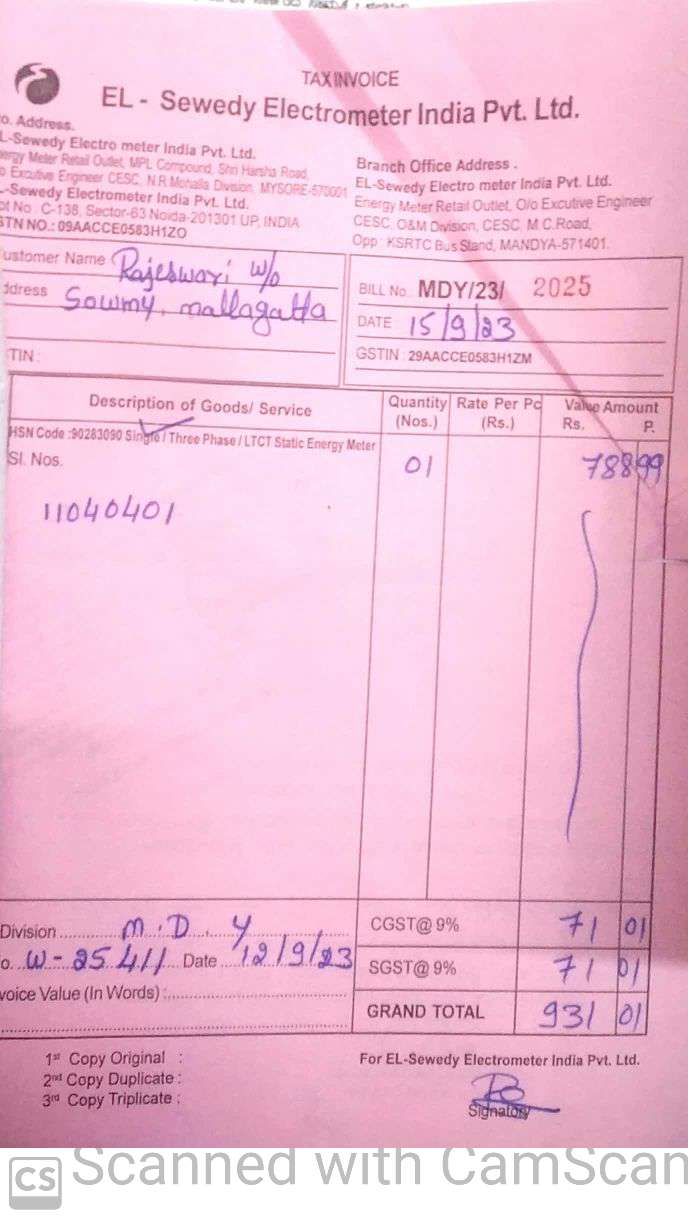 TAX INVOICE
EL - Sewedy Electrometer India Pvt. Ltd.
o. Address.
L-Sewedy Electro meter India Pvt. Ltd.
nergy Meter Retail Outlet, MPL Compound, Shri Harsha Road,
o Excutive Engineer CESC, N.R Mohalla Division, MYSORE-570001
-Sewedy Electrometer India Pvt. Ltd.
ot No C-138, Sector-63 Noida-201301 UP, INDIA
STN NO.: 09AACCE0583H1ZO
Branch Office Address .
EL-Sewedy Electro meter India Pvt. Ltd.
Energy Meter Retail Outlet, O/o Excutive Engineer
CESC, O&M Division, CESC, M.C.Road,
Opp : KSRTC Bus Stand, MANDYA-571401.
ustomer Name Rajeswari w/o
ddress Sowmy, mallagatta
TIN :
BILL No. MDY/23/ 2025
DATE 15/9/23
GSTIN : 29AACCE0583H1ZM
Description of Goods/ Service Quantity (Nos.) Rate Per Pc (Rs.) Value Amount Rs. P.
HSN Code :90283090 Single / Three Phase / LTCT Static Energy Meter
Sl. Nos. 01 788 99
11040401
Division M.D.Y CGST@ 9% 71 01
o. W-25411 Date 12/9/23 SGST@ 9% 71 01
voice Value (In Words) :
GRAND TOTAL 931 01
1st Copy Original :
2nd Copy Duplicate :
3rd Copy Triplicate :
For EL-Sewedy Electrometer India Pvt. Ltd.
Signatory
CS Scanned with CamScan